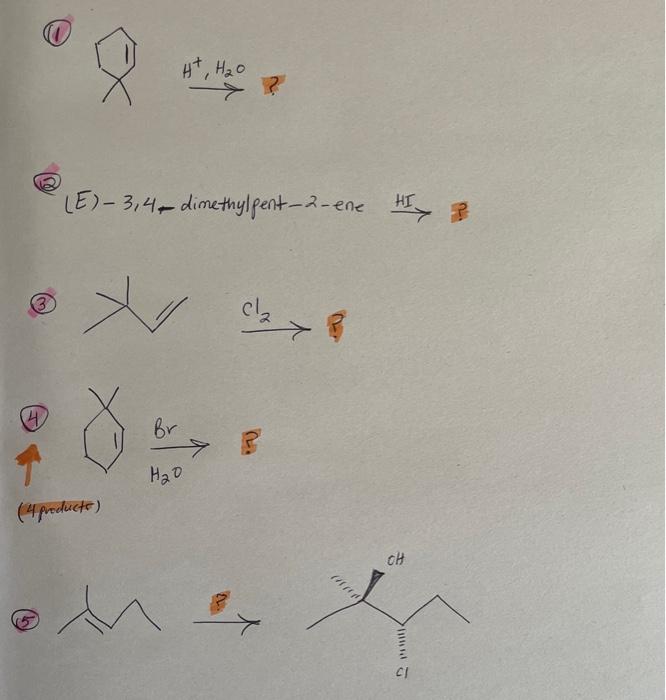 1
H⁺, H₂O
?
2
(E) - 3,4 - dimethylpent - 2 - ene HI ?
3
Cl₂
?
4
Br
H₂O
?
(4 products)
5
?
OH
Cl